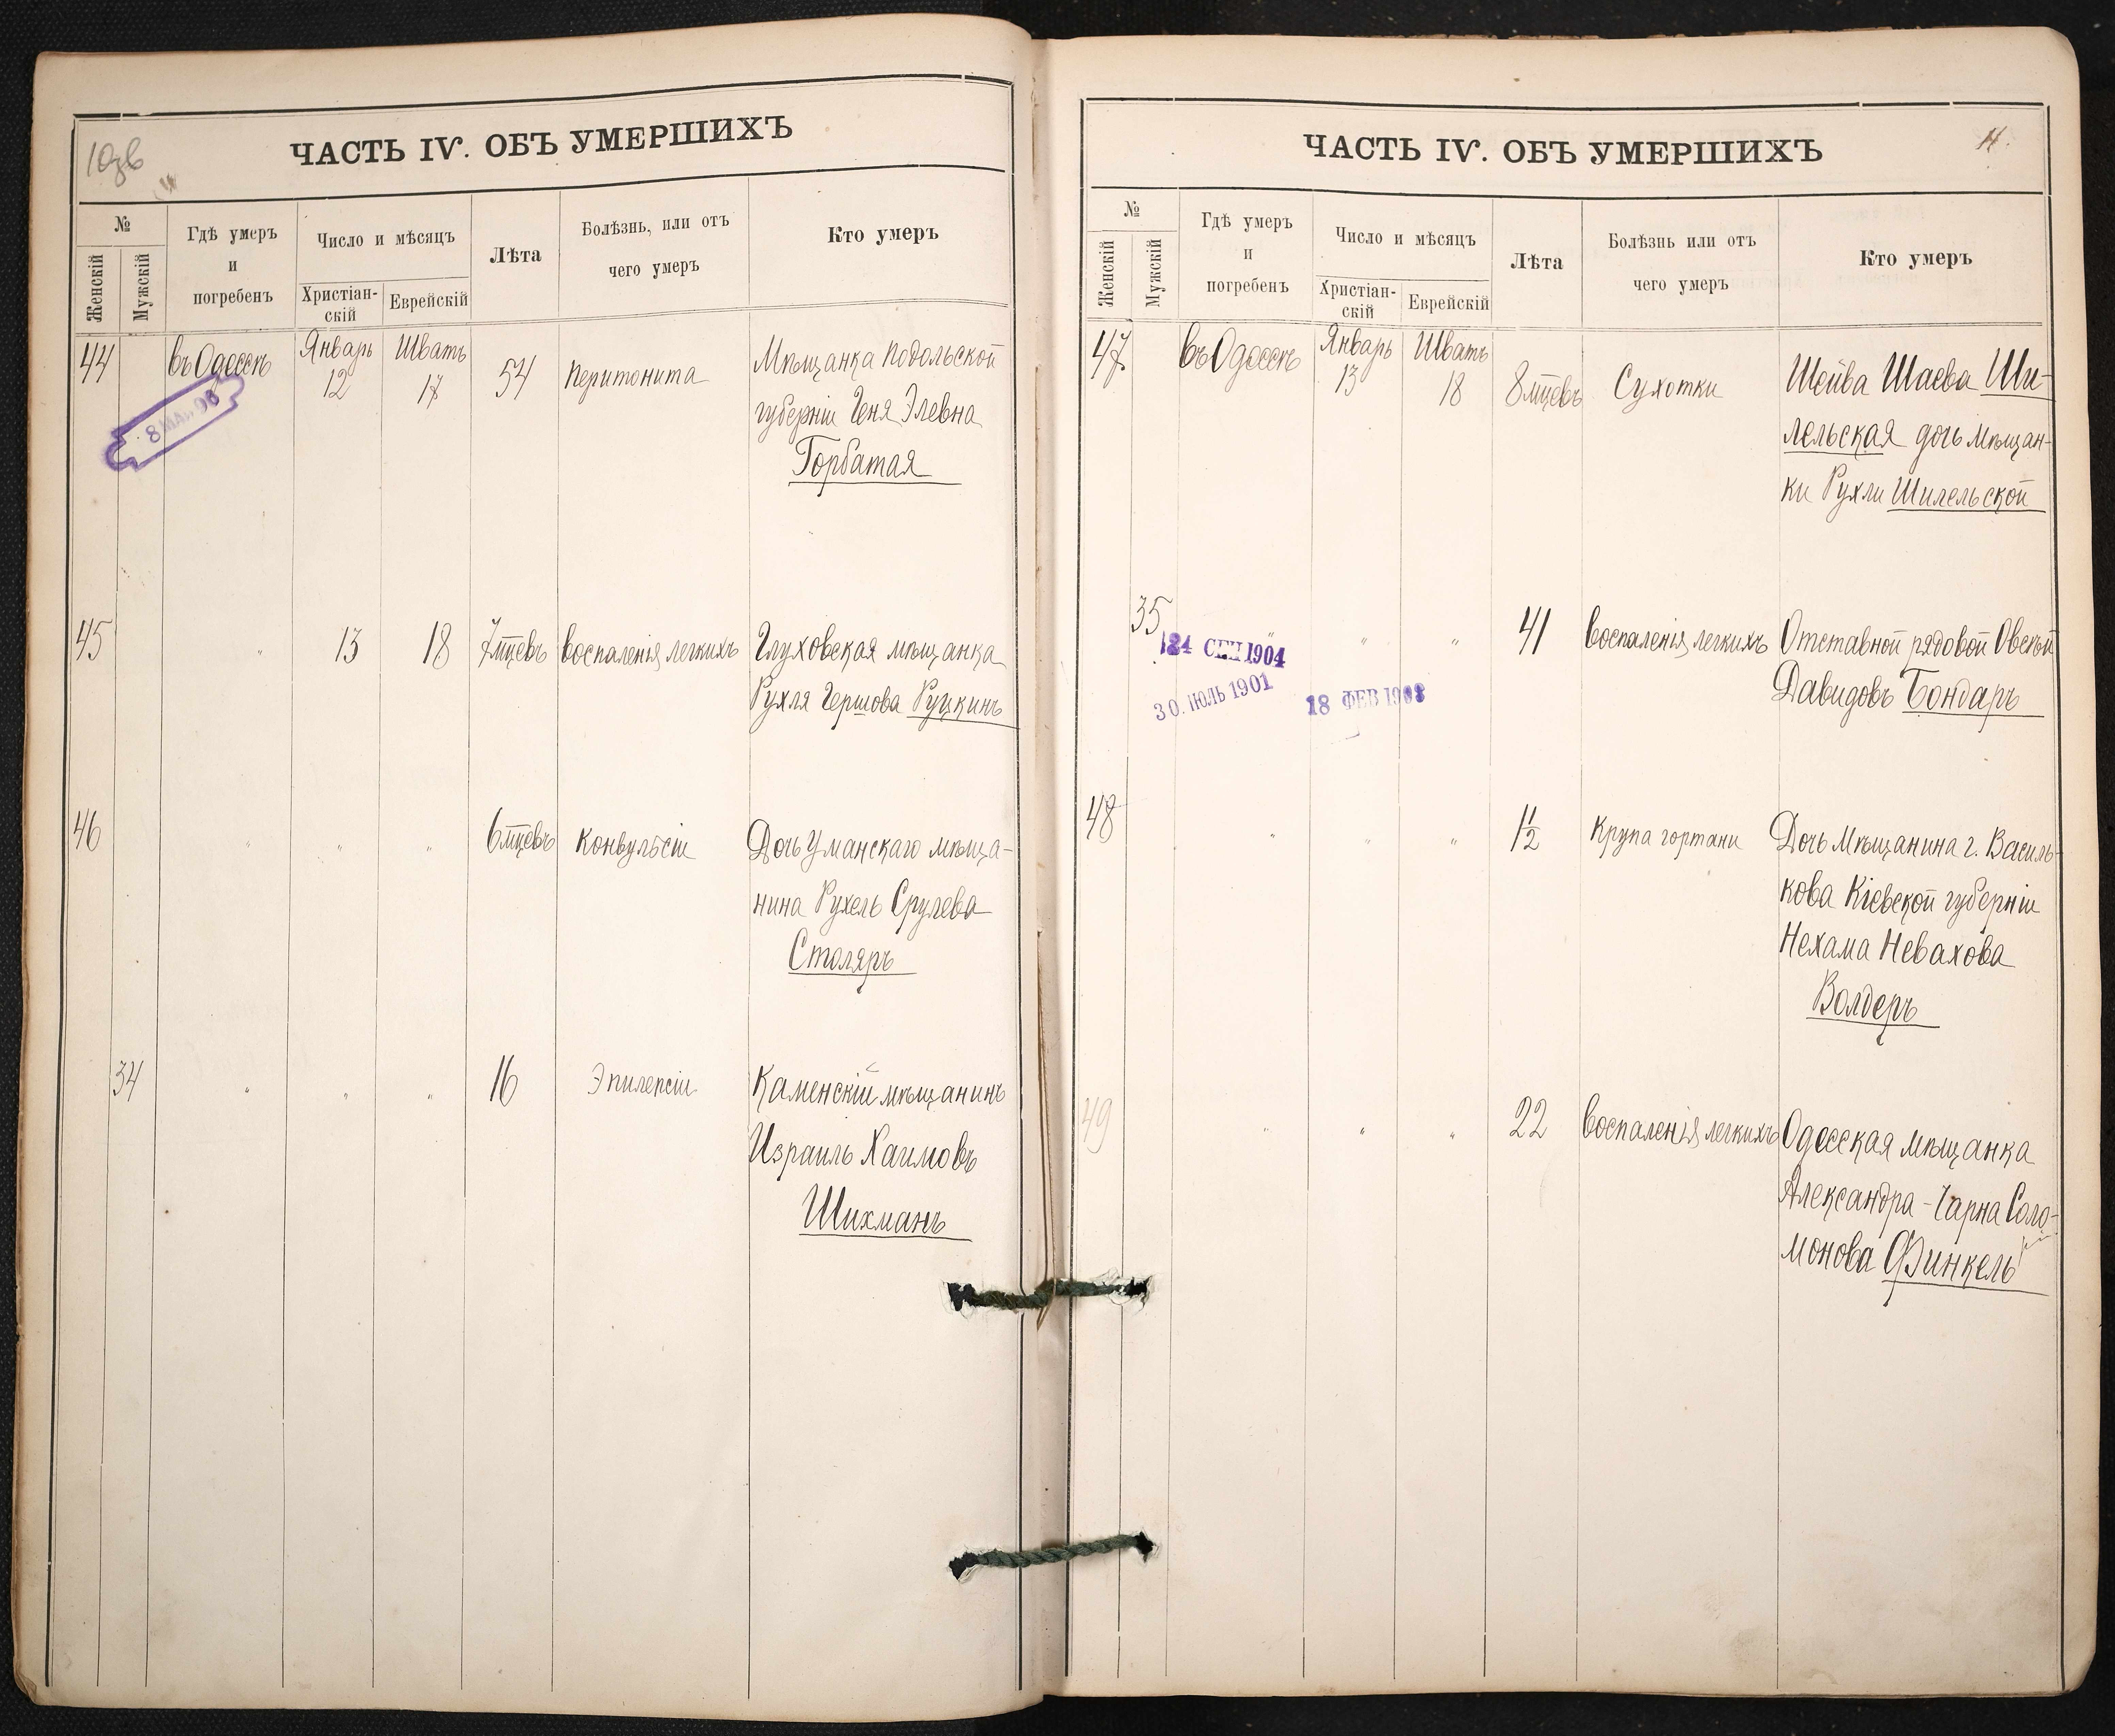 ЧАСТЬ IV. ОБЪ УМЕРШИХЪ
№
Женскій
Мужскій
Гдѣ умеръ
и
погребенъ
Число и мѣсяцъ
Христіан-
скій
Еврейскій
Лѣта
Болѣзнь, или отъ
чего умеръ
Кто умеръ
44
въ Одессѣ
Январь
12
Шватъ
17
54
Перитонита
Мѣщанка Подольской
губерніи Геня Элевна
Горбатая
45
"
13
18
7 мцевъ
воспаленія легкихъ
Глуховская мѣщанка
Рухля Гершова Руцкинъ
46
"
"
"
6 мцевъ
Конвульсіи
Дочь Уманскаго мѣща-
нина Рухель Срулева
Столяръ
34
"
"
"
16
Эпилепсіи
Каменскій мѣщанинъ
Израиль Хаимовъ
Шихманъ
ЧАСТЬ IV. ОБЪ УМЕРШИХЪ
11.
№
Женскій
Мужскій
Гдѣ умеръ
и
погребенъ
Число и мѣсяцъ
Христіан-
скій
Еврейскій
Лѣта
Болѣзнь или отъ
чего умеръ
Кто умеръ
47
въ Одессѣ
Январь
13
Шватъ
18
8 мцевъ
Сухотки
Шейва Шаева Ши-
лельская дочь мѣщан-
ки Рухли Шилельской
35
"
"
41
воспаленія легкихъ
Отставной рядовой
Давидовъ Бондаръ
24 СЕН 1904
30. ІЮЛЬ 1901
18 ФЕВ
48
"
"
"
1½
Крупа гортани
Дочь Мѣщанина г. Василь-
кова Кіевской губерніи
Нехама Невахова
Волдеръ
49
"
"
"
22
воспаленія легкихъ
Одесская мѣщанка
Александра-Чарна Соло-
монова Финкель